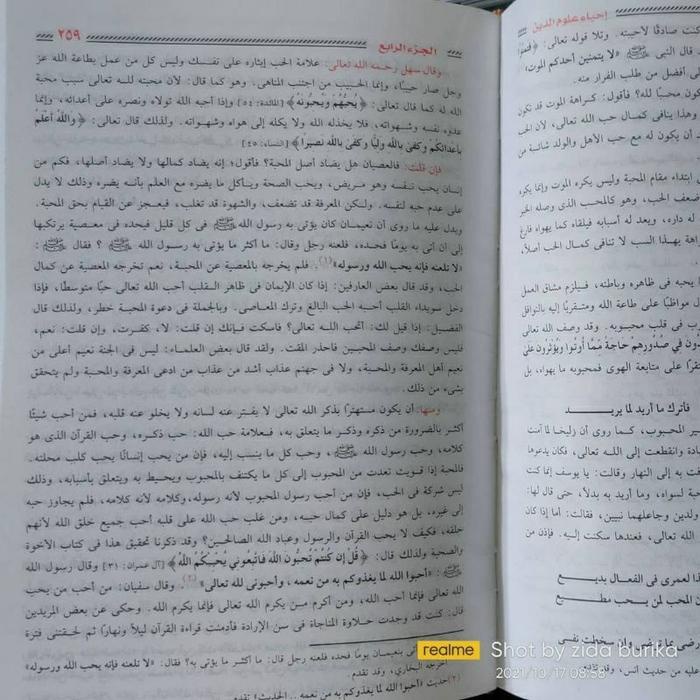 الجزء الرابع
٢٥٩
وقال سهل رحمه الله تعالى: علامة الحب إيثاره على نفسك وليس كل من عمل بطاعة الله عز
وجل صار حبيبًا، وإنما الحبيب من اجتنب المناهي، وهو كما قال: لأن محبته لله تعالى سبب محبة
الله له كما قال تعالى: ﴿يُحِبُّهُمْ وَيُحِبُّونَهُ﴾ [المائدة: ٥٤] وإذا أحبه الله تولاه ونصره على أعدائه، وإنما
عدوه نفسه وشهواته، فلا يخذله الله ولا يكله إلى هواه وشهواته. ولذلك قال تعالى: ﴿وَاللَّهُ أَعْلَمُ
بِأَعْدَائِكُمْ وَكَفَىٰ بِاللَّهِ وَلِيًّا وَكَفَىٰ بِاللَّهِ نَصِيرًا﴾ [النساء: ٤٥]
فإن قلت: فالعصيان هل يضاد أصل المحبة؟ فأقول: إنه يضاد كمالها ولا يضاد أصلها، فكم من
إنسان يحب نفسه وهو مريض، ويحب الصحة ويأكل ما يضره مع العلم بأنه يضره وذلك لا يدل
على عدم حبه لنفسه. ولكن المعرفة قد تضعف، والشهوة قد تغلب، فيعجز عن القيام بحق المحبة.
ويدل عليه ما روى أن نعيمان كان يؤتى به رسول الله ﷺ في كل قليل فيحده في معصية يرتكبها
إلى أن أتى به يومًا فحده، فلعنه رجل وقال: ما أكثر ما يؤتى به رسول الله ﷺ ؟ فقال ﷺ :
«لا تلعنه فإنه يحب الله ورسوله»(١). فلم يخرجه بالمعصية عن المحبة، نعم تخرجه المعصية عن كمال
الحب، وقد قال بعض العارفين: إذا كان الإيمان في ظاهر القلب أحب الله تعالى حبًا متوسطًا، فإذا
دخل سويداء القلب أحبه الحب البالغ وترك المعاصي. وبالجملة في دعوة المحبة خطر، ولذلك قال
الفضيل: إذا قيل لك: أتحب الله تعالى؟ فاسكت فإنك إن قلت: لا، كفرت، وإن قلت: نعم،
فليس وصفك وصف المحبين فاحذر المقت. ولقد قال بعض العلماء: ليس في الجنة نعيم أعلى من
نعيم أهل المعرفة والمحبة، ولا في جهنم عذاب أشد من عذاب من ادعى المعرفة والمحبة ولم يتحقق
بشيء من ذلك.
ومنها: أن يكون مستهترًا بذكر الله تعالى لا يفتر عنه لسانه ولا يخلو عنه قلبه، فمن أحب شيئًا
أكثر بالضرورة من ذكره وذكر ما يتعلق به، فعلامة حب الله: حب ذكره، وحب القرآن الذي هو
كلامه، وحب رسول الله ﷺ، وحب كل ما ينسب إليه، فإن من يحب إنسانًا يحب كلب محلته.
فالمحبة إذا قويت تعدت من المحبوب إلى كل ما يكتنف بالمحبوب ويحيط به ويتعلق بأسبابه، وذلك
ليس شركة في الحب، فإن من أحب رسول المحبوب لأنه رسوله، وكلامه لأنه كلامه، فلم يجاوز حبه
إلى غيره، بل هو دليل على كمال حبه، ومن غلب حب الله على قلبه أحب جميع خلق الله لأنهم
خلقه، فكيف لا يحب القرآن والرسول وعباد الله الصالحين؟ وقد ذكرنا تحقيق هذا في كتاب الأخوة
والصحبة ولذلك قال: ﴿قُلْ إِن كُنتُمْ تُحِبُّونَ اللَّهَ فَاتَّبِعُونِي يُحْبِبْكُمُ اللَّهُ﴾ [آل عمران: ٣١] وقال رسول الله
ﷺ : «أحبوا الله لما يغذوكم به من نعمه، وأحبوني لله تعالى»(٢). وقال سفيان: من أحب من يحب
الله تعالى فإنما أحب الله، ومن أكرم من يكرم الله تعالى فإنما يكرم الله. وحكى عن بعض المريدين
قال: كنت قد وجدت حلاوة المناجاة في سن الإرادة فأدمنت قراءة القرآن ليلًا ونهارًا ثم لحقتني فترة
أتى بنعيمان يومًا فحده فلعنه رجل قال: ما أكثر ما يؤتى به؟ فقال: «لا تلعنه فإنه يحب الله ورسوله»
أخرجه البخاري، وقد تقدم.
(٢) حديث «أحبوا الله لما يغذوكم به من نعمه .. الحديث» تقدم.
إحياء علوم الدين
كنت صادقًا لأحببته. وتلا قوله تعالى:
قال النبي ﷺ «لا يتمنين أحدكم الموت
أفضل من طلب الفرار منه.
محبًا لله؟ فأقول: كراهة الموت قد تكون
وهذا ينافي كمال حب الله تعالى، لأن الحب
أن يكون له مع حب الأهل والولد شائبة من
ابتداء مقام المحبة وليس يكره الموت وإنما يكره
ضعف الحب، وهو كالمحب الذي وصله الخبر
له داره، ويعد له أسبابه فيلقاه كما يهواه فارغ
بهذا السبب لا تنافي كمال الحب أصلًا،
يحبه في ظاهره وباطنه، فيلزم مشاق العمل
مواظبًا على طاعة الله ومتقربًا إليه بالنوافل
في قلب محبوبه. وقد وصف الله تعالى
فِي صُدُورِهِمْ حَاجَةً مِّمَّا أُوتُوا وَيُؤْثِرُونَ عَلَىٰ
على متابعة الهوى فمحبوبه ما يهواه، بل
فأترك ما أريد لما يريد
المحبوب، كما روى أن زليخا لما آمنت
وانقطعت إلى الله تعالى، فكان يدعوها
به إلى النهار وقالت: يا يوسف إنما كنت
لسواه، وما أريد به بدلًا، حتى قال لها:
ولدين وجاعلهما نبيين، فقالت: أما إذا كان
الله تعالى، فعندها سكنت إليه. فإذن من
هذا لعمري في الفعال بديع
إن المحب لمن يحب مطيع
وإن سخطت نفسي
من حديث أنس، وقد تقدم
realme
Shot by zida burika
2021/10/17 08:58